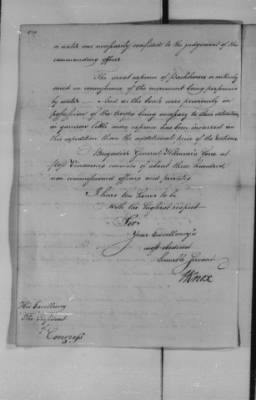 a water was necessarily confided to the judgement of the
commanding officer
The usual expence of Packhorses is entirely
saved in consequence of the movement being performed
by water And as the boats were previously in
possession of the troops being necessary to their situation
in garrison little more expence has been incurred in
this expedition than the additional price of the rations
Brigadier General Harmar's force at
post Vincennes consists of about three hundred
non commissioned officers and privates
I have the honor to be
With the highest respect
Sir
Your Excellency's
most obedient
humble Servant
HKnox
His Excellency
The President
of
Congress